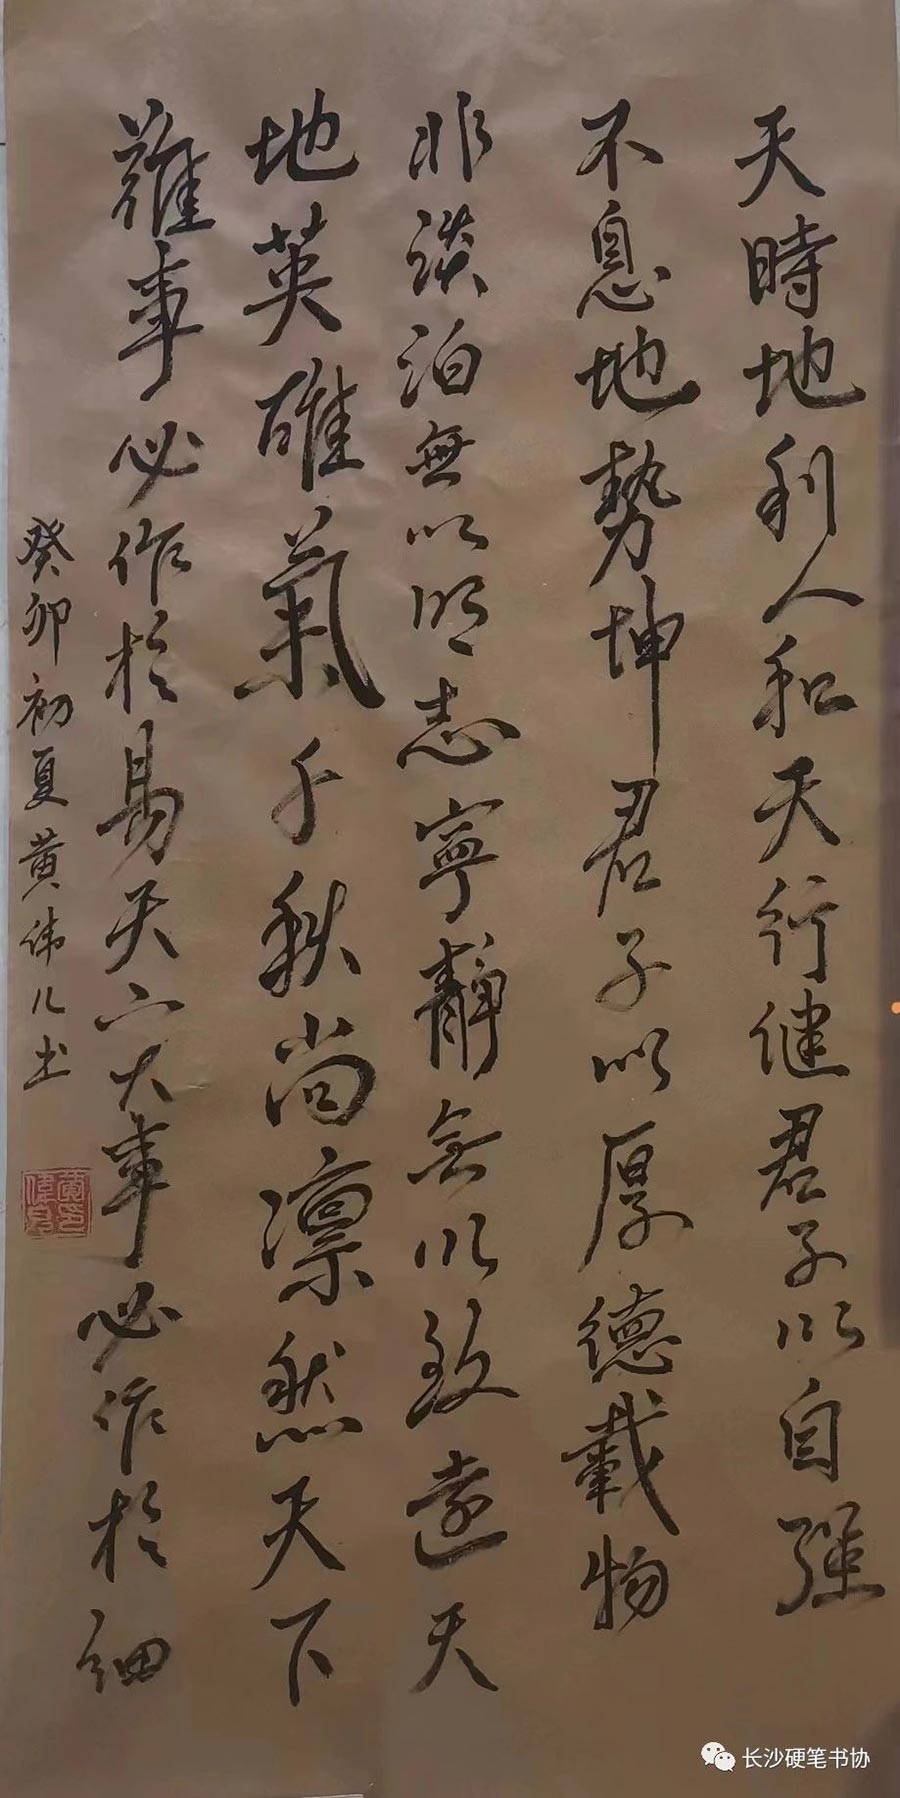 天時地利人和天行健君子以自强
不息地勢坤君子以厚德載物
非淡泊無以明志寧静無以致遠天
地英雄氣千秋尚凛然天下
難事必作於易天下大事必作於細
癸卯初夏黄伟儿书
長沙硬笔书协